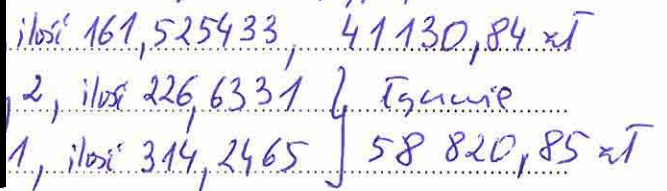 ilość 161,525433, 41130,84 zł
,2, ilość 226,6331 } Łącznie
1, ilość 314,2465 } 58 820,85 zł